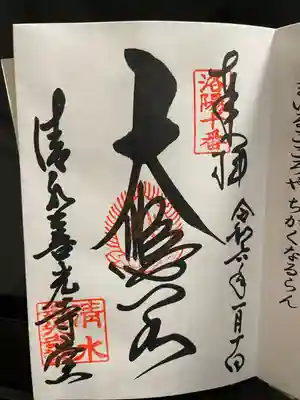 奉拝
洛陽十番
令和六年一月十日
大悲閣
清水善光寺堂
清水
まいるこころやちかくなるらん